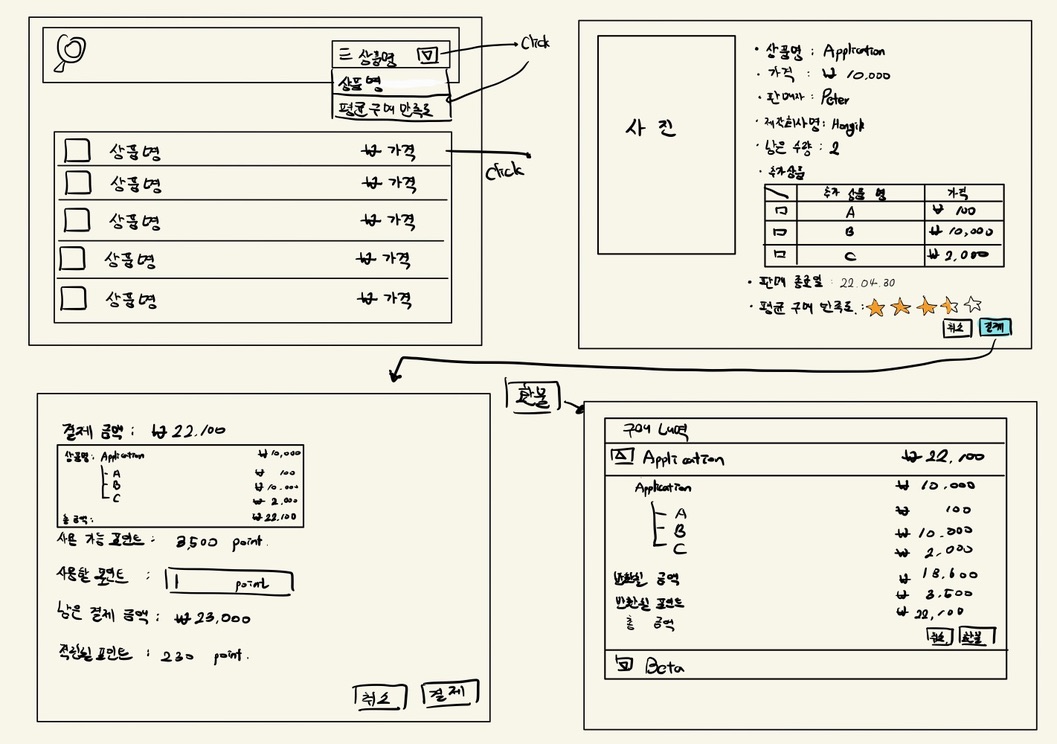 상품명
Click
상품명
평균 구매 만족도
상품명 ₩ 가격
Click
상품명 ₩ 가격
상품명 ₩ 가격
상품명 ₩ 가격
상품명 ₩ 가격
사진
· 상품명 : Application
· 가격 : ₩ 10,000
· 판매자 : Peter
· 제작회사명 : Hongik
· 남은 수량 : 2
· 추가상품
추가 상품 명 가격
A ₩ 100
B ₩ 10,000
C ₩ 2,000
· 판매 종료일 : 22.04.30
· 평균 구매 만족도 :
취소 결제
결제 금액 : ₩ 22,100
상품명 : Application ₩ 10,000
A ₩ 100
B ₩ 10,000
C ₩ 2,000
총 금액 : ₩ 22,100
사용 가능 포인트 : 3,500 point.
사용할 포인트 : point
남은 결제 금액 : ₩ 23,000
적립될 포인트 : 230 point.
취소 결제
환불
구매 내역
Application ₩ 22,100
Application ₩ 10,000
A ₩ 100
B ₩ 10,000
C ₩ 2,000
반환될 금액 ₩ 18,600
반환될 포인트 ₩ 3,500
총 금액 ₩ 22,100
취소 환불
Beta